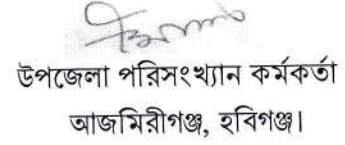 উপজেলা পরিসংখ্যান কর্মকর্তা
আজমিরীগঞ্জ, হবিগঞ্জ।